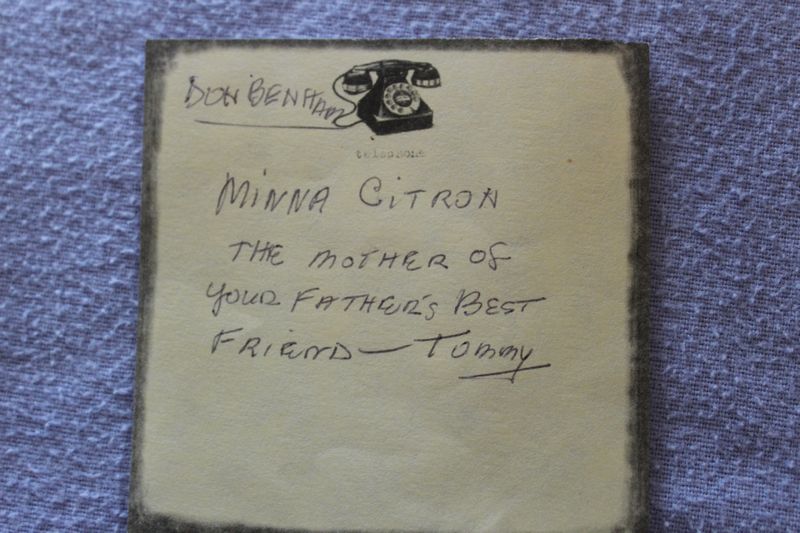 DON BENHAM
telephone
MiNNA CiTRON
THE MOTHER OF
YOUR FATHER'S BEST
FRIEND — Tommy